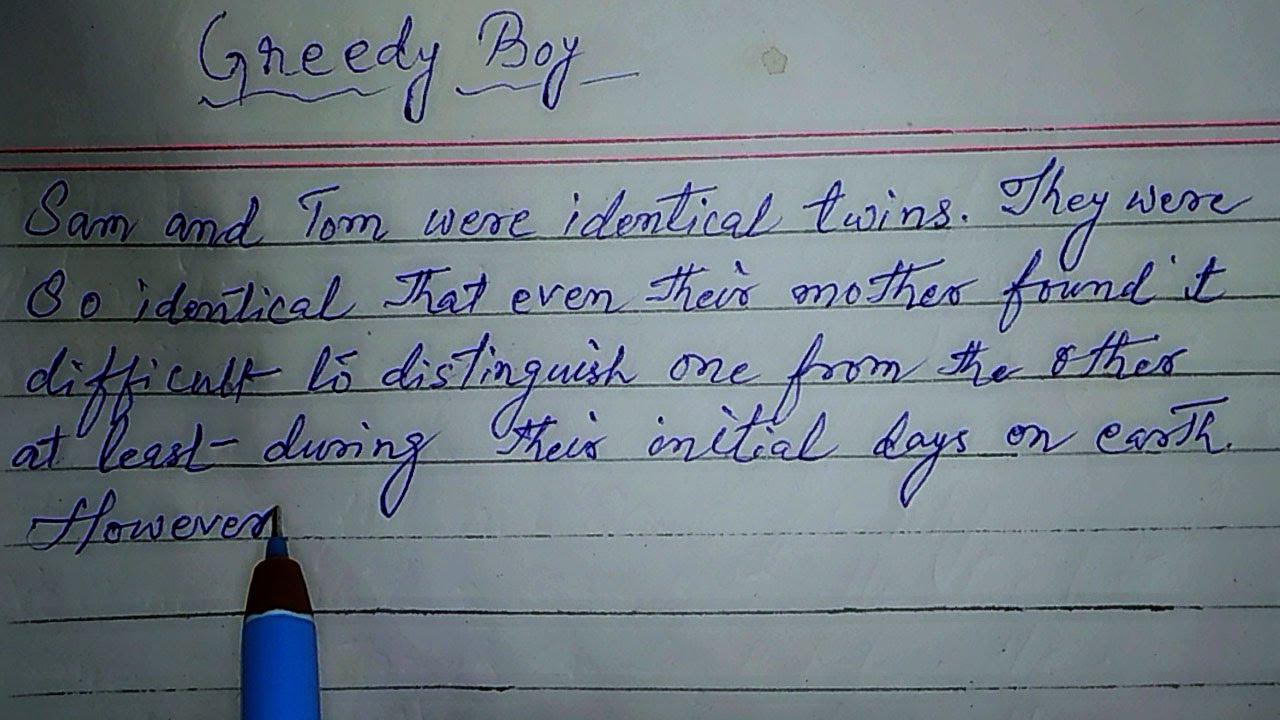 Greedy Boy
Sam and Tom were identical twins. They were
So identical that even their mother found it
difficult to distinguish one from the other
at least during their initial days on earth.
However